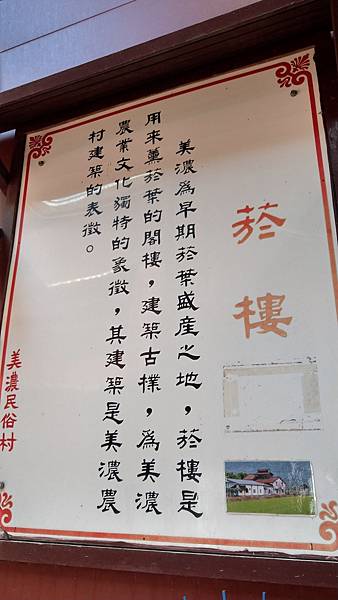 菸樓
美濃為早期菸葉盛產之地，菸樓是
用來薰菸葉的閣樓，建築古樸，為美濃
農業文化獨特的象徵，其建築是美濃農
村建築的表徵。
美濃民俗村